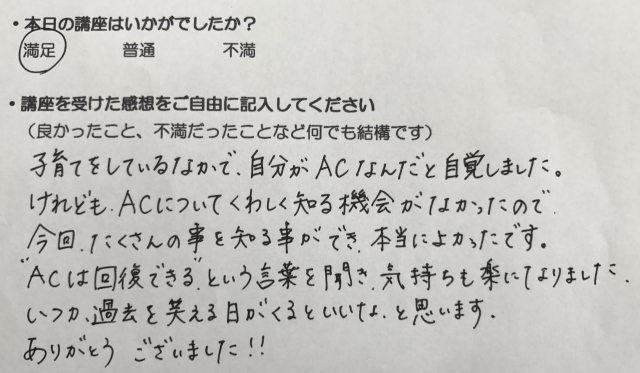 ・本日の講座はいかがでしたか？
満足　普通　不満
・講座を受けた感想をご自由に記入してください
（良かったこと、不満だったことなど何でも結構です）
子育てをしているなかで、自分がACなんだと自覚しました。
けれども、ACについてくわしく知る機会がなかったので、
今回、たくさんの事を知る事ができ、本当によかったです。
"ACは回復できる"という言葉を聞き、気持ちも楽になりました。
いつか、過去を笑える日がくるといいな、と思います。
ありがとう ございました!!